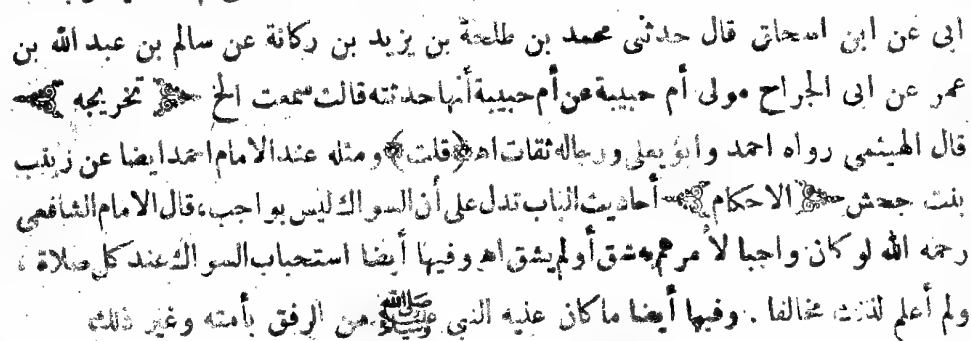 ابى عن ابن اسحاق قال حدثنى محمد بن طلحة بن يزيد بن ركانة عن سالم بن عبد الله بن
عمر عن ابى الجراح مولى أم حبيبة عن أم حبيبة أنها حدثته قالت سمعت الخ ﴿ تخريجه ﴾
قال الهيثمي رواه احمد وابو يعلى ورجاله ثقات اه ﴿ قلت ﴾ ومثله عند الامام احمد ايضا عن زينب
بنت جحش ﴿ الاحكام ﴾ أحاديث الباب تدل على أن السواك ليس بواجب، قال الامام الشافعى
رحمه الله لو كان واجبا لأمرهم به شق أو لم يشق اه وفيها أيضا استحباب السواك عند كل صلاة ،
ولم أعلم لذلك مخالفا . وفيها أيضا ما كان عليه النبى ﷺ من الرفق بأمته وغير ذلك